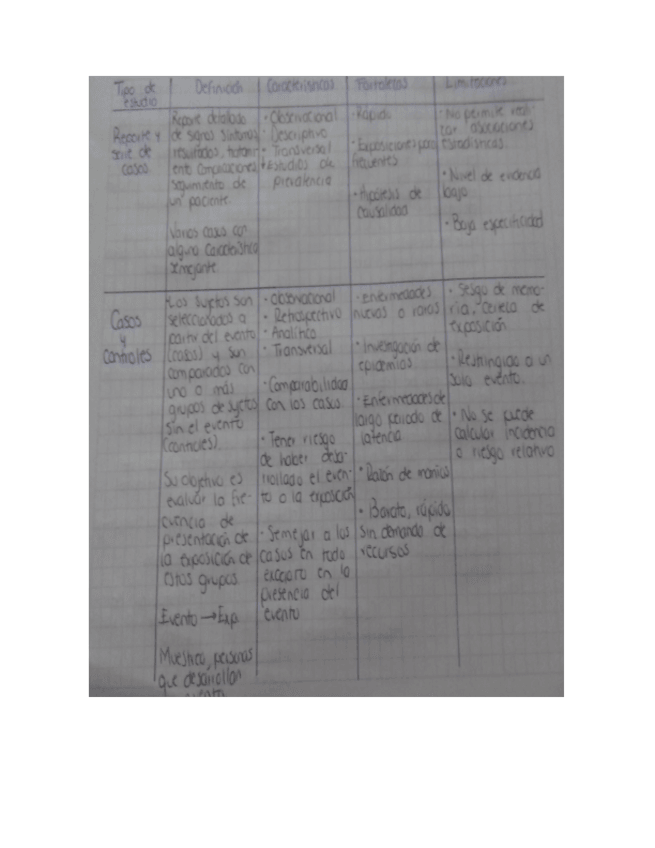 Tipo de estudio
Definición
Características
Fortalezas
Limitaciones
Reporte y
serie de
casos
Reporte detallado
de signos síntomas
resultados, tratami-
ento complicaciones
seguimiento de
un paciente
Varios casos con
alguna característica
semejante
• Observacional
• Descriptivo
• Transversal
• Estudios de
prevalencia
• Rápido
• Exposiciones poco
frecuentes
• Hipótesis de
causalidad
• No permite reali-
zar asociaciones
estadísticas
• Nivel de evidencia
bajo
• Baja especificidad
Casos
y
controles
Los sujetos son
seleccionados a
partir del evento
(casos) y son
comparados con
uno o más
grupos de sujetos
sin el evento
(controles)
Su objetivo es
evaluar la fre-
cuencia de
presentación de
la exposición de
estos grupos
Evento → Exp.
Muestreo, personas
que desarrollan
• Observacional
• Retrospectivo
• Analítico
• Transversal
• Comparabilidad
con los casos.
• Tener riesgo
de haber desa-
rrollado el even-
to o la exposición
• Semejar a los
casos en todo
excepto en la
presencia del
evento
• Enfermedades
nuevas o raras
• Investigación de
epidemias
• Enfermedades de
largo periodo de
latencia
• Razón de momios
• Barato, rápido
sin demando de
recursos
• Sesgo de memo-
ria, certeza de
exposición
• Restringido a un
solo evento.
• No se puede
calcular incidencia
o riesgo relativo